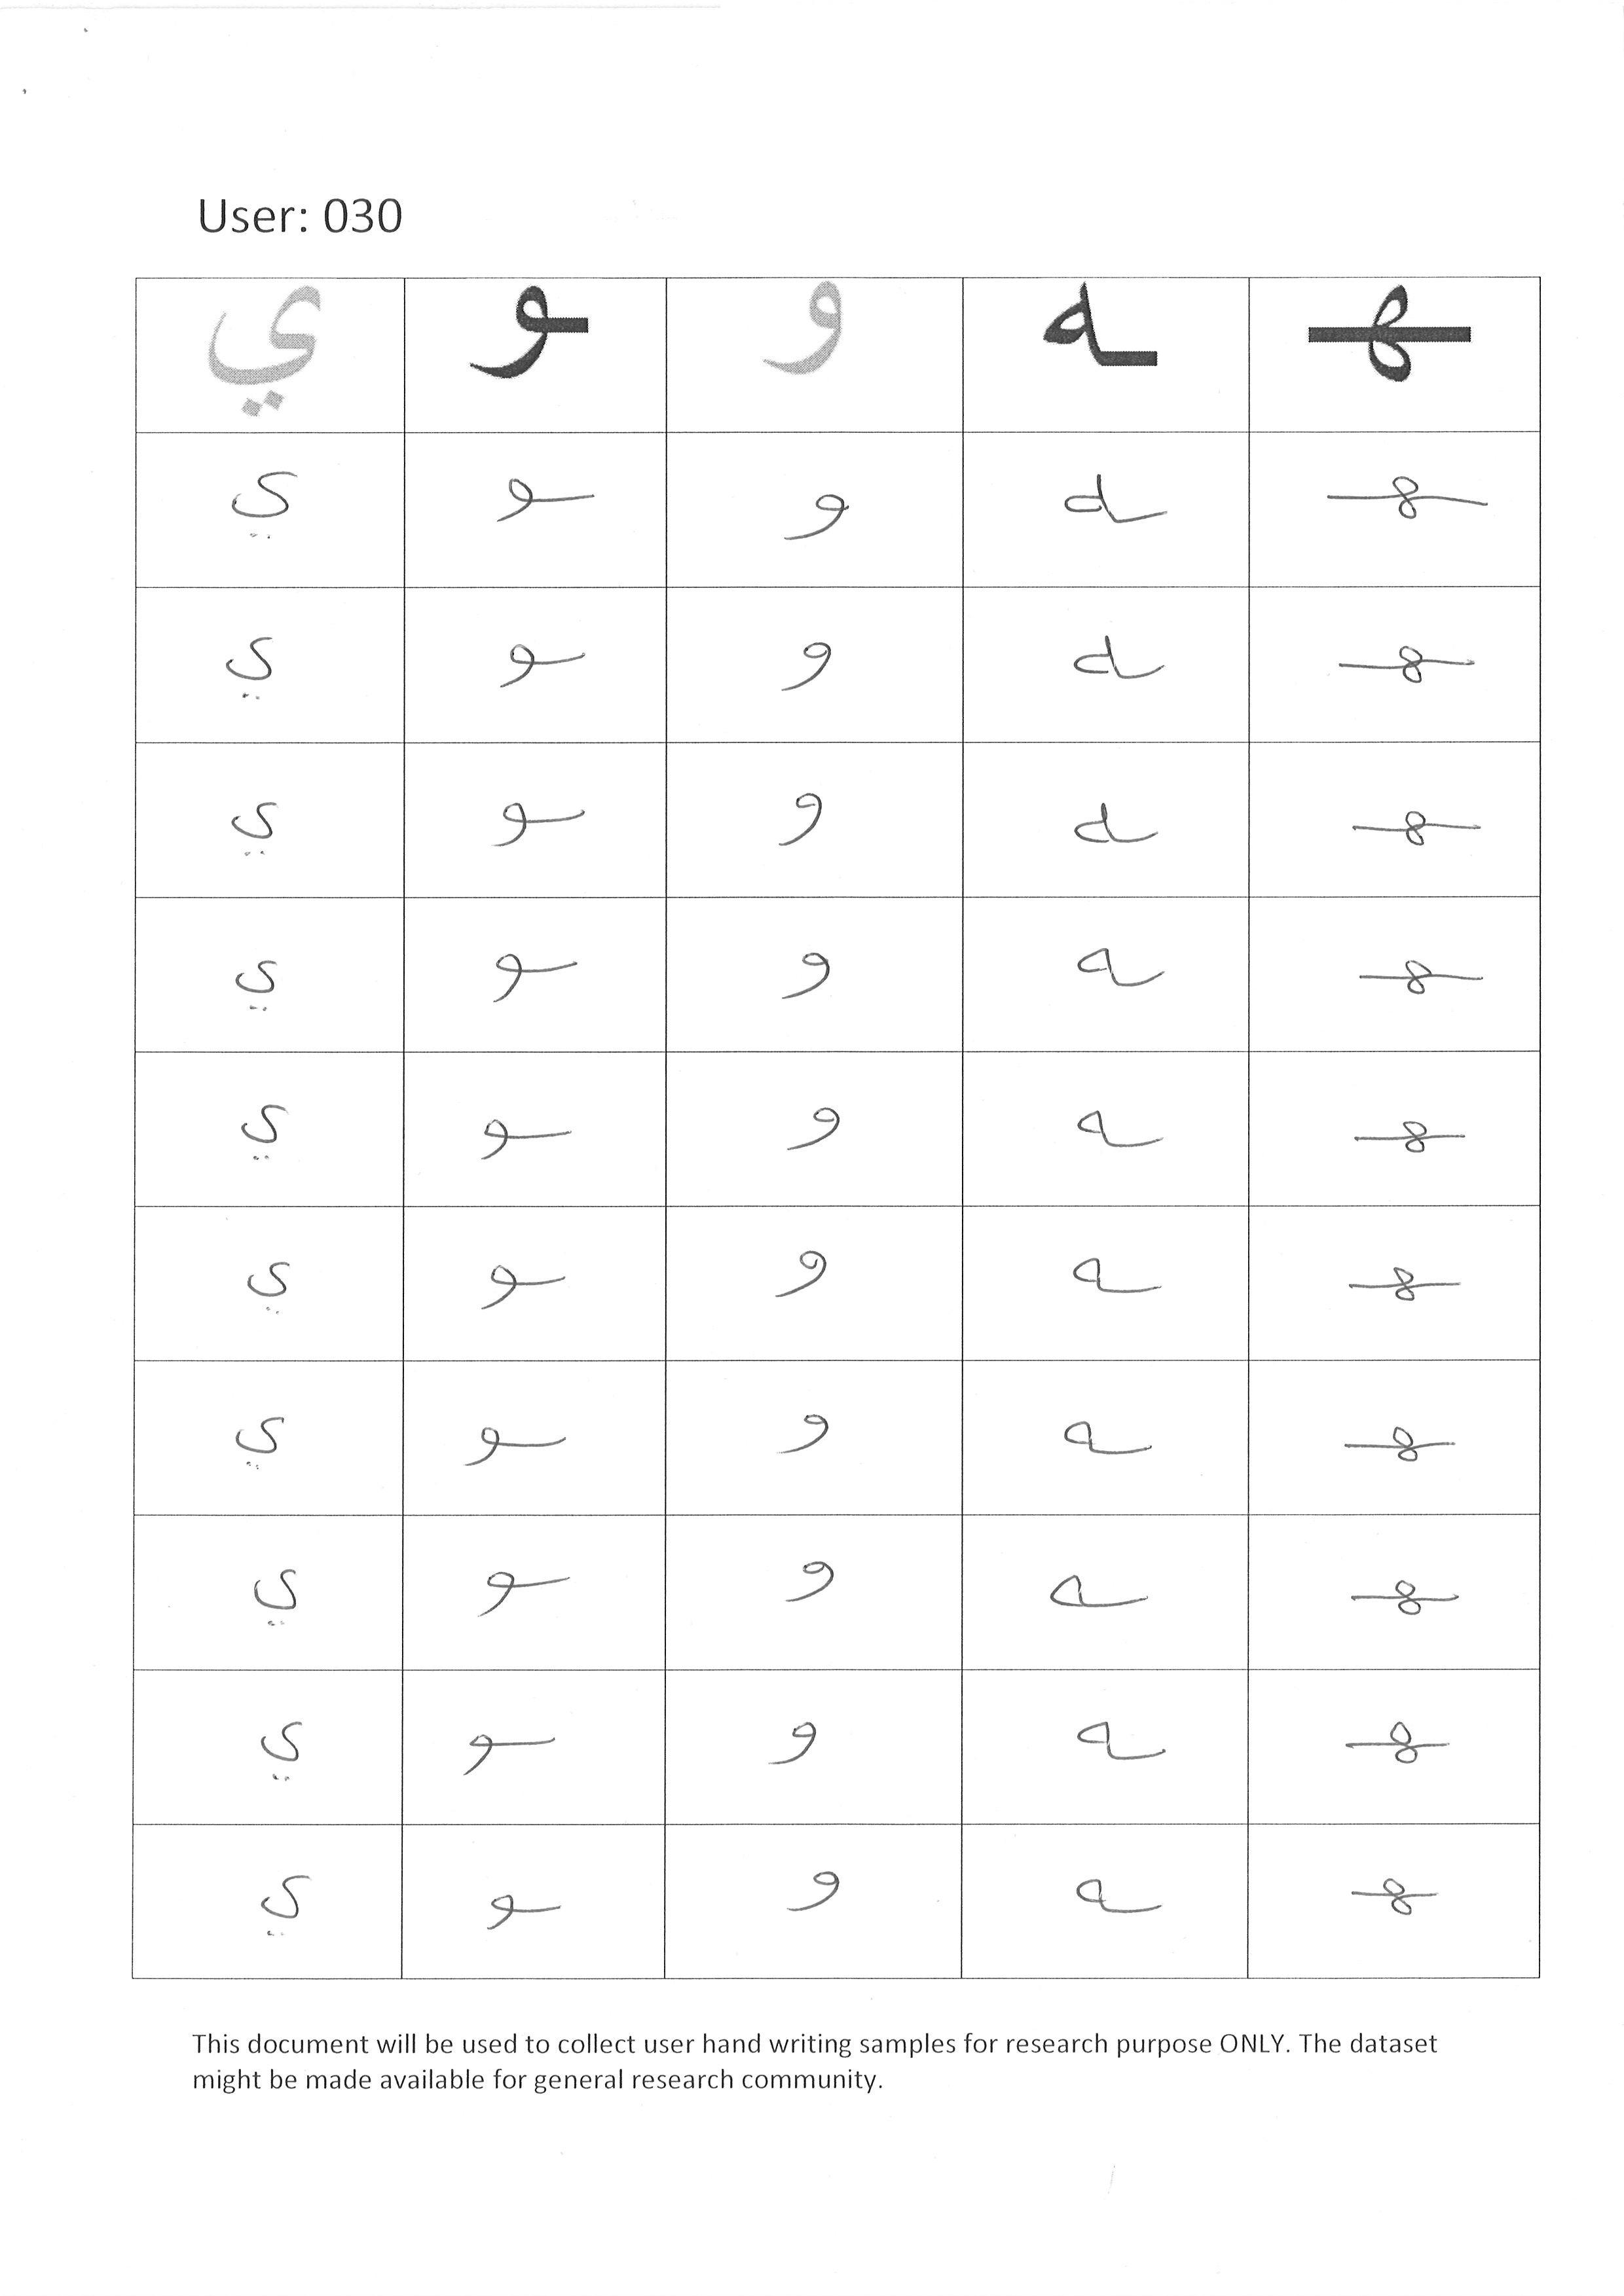 User: 030
ي ـو و ـه ـهـ
ي ـو و ـه ـهـ
ي ـو و ـه ـهـ
ي ـو و ـه ـهـ
ي ـو و ـه ـهـ
ي ـو و ـه ـهـ
ي ـو و ـه ـهـ
ي ـو و ـه ـهـ
ي ـو و ـه ـهـ
ي ـو و ـه ـهـ
ي ـو و ـه ـهـ
This document will be used to collect user hand writing samples for research purpose ONLY. The dataset
might be made available for general research community.